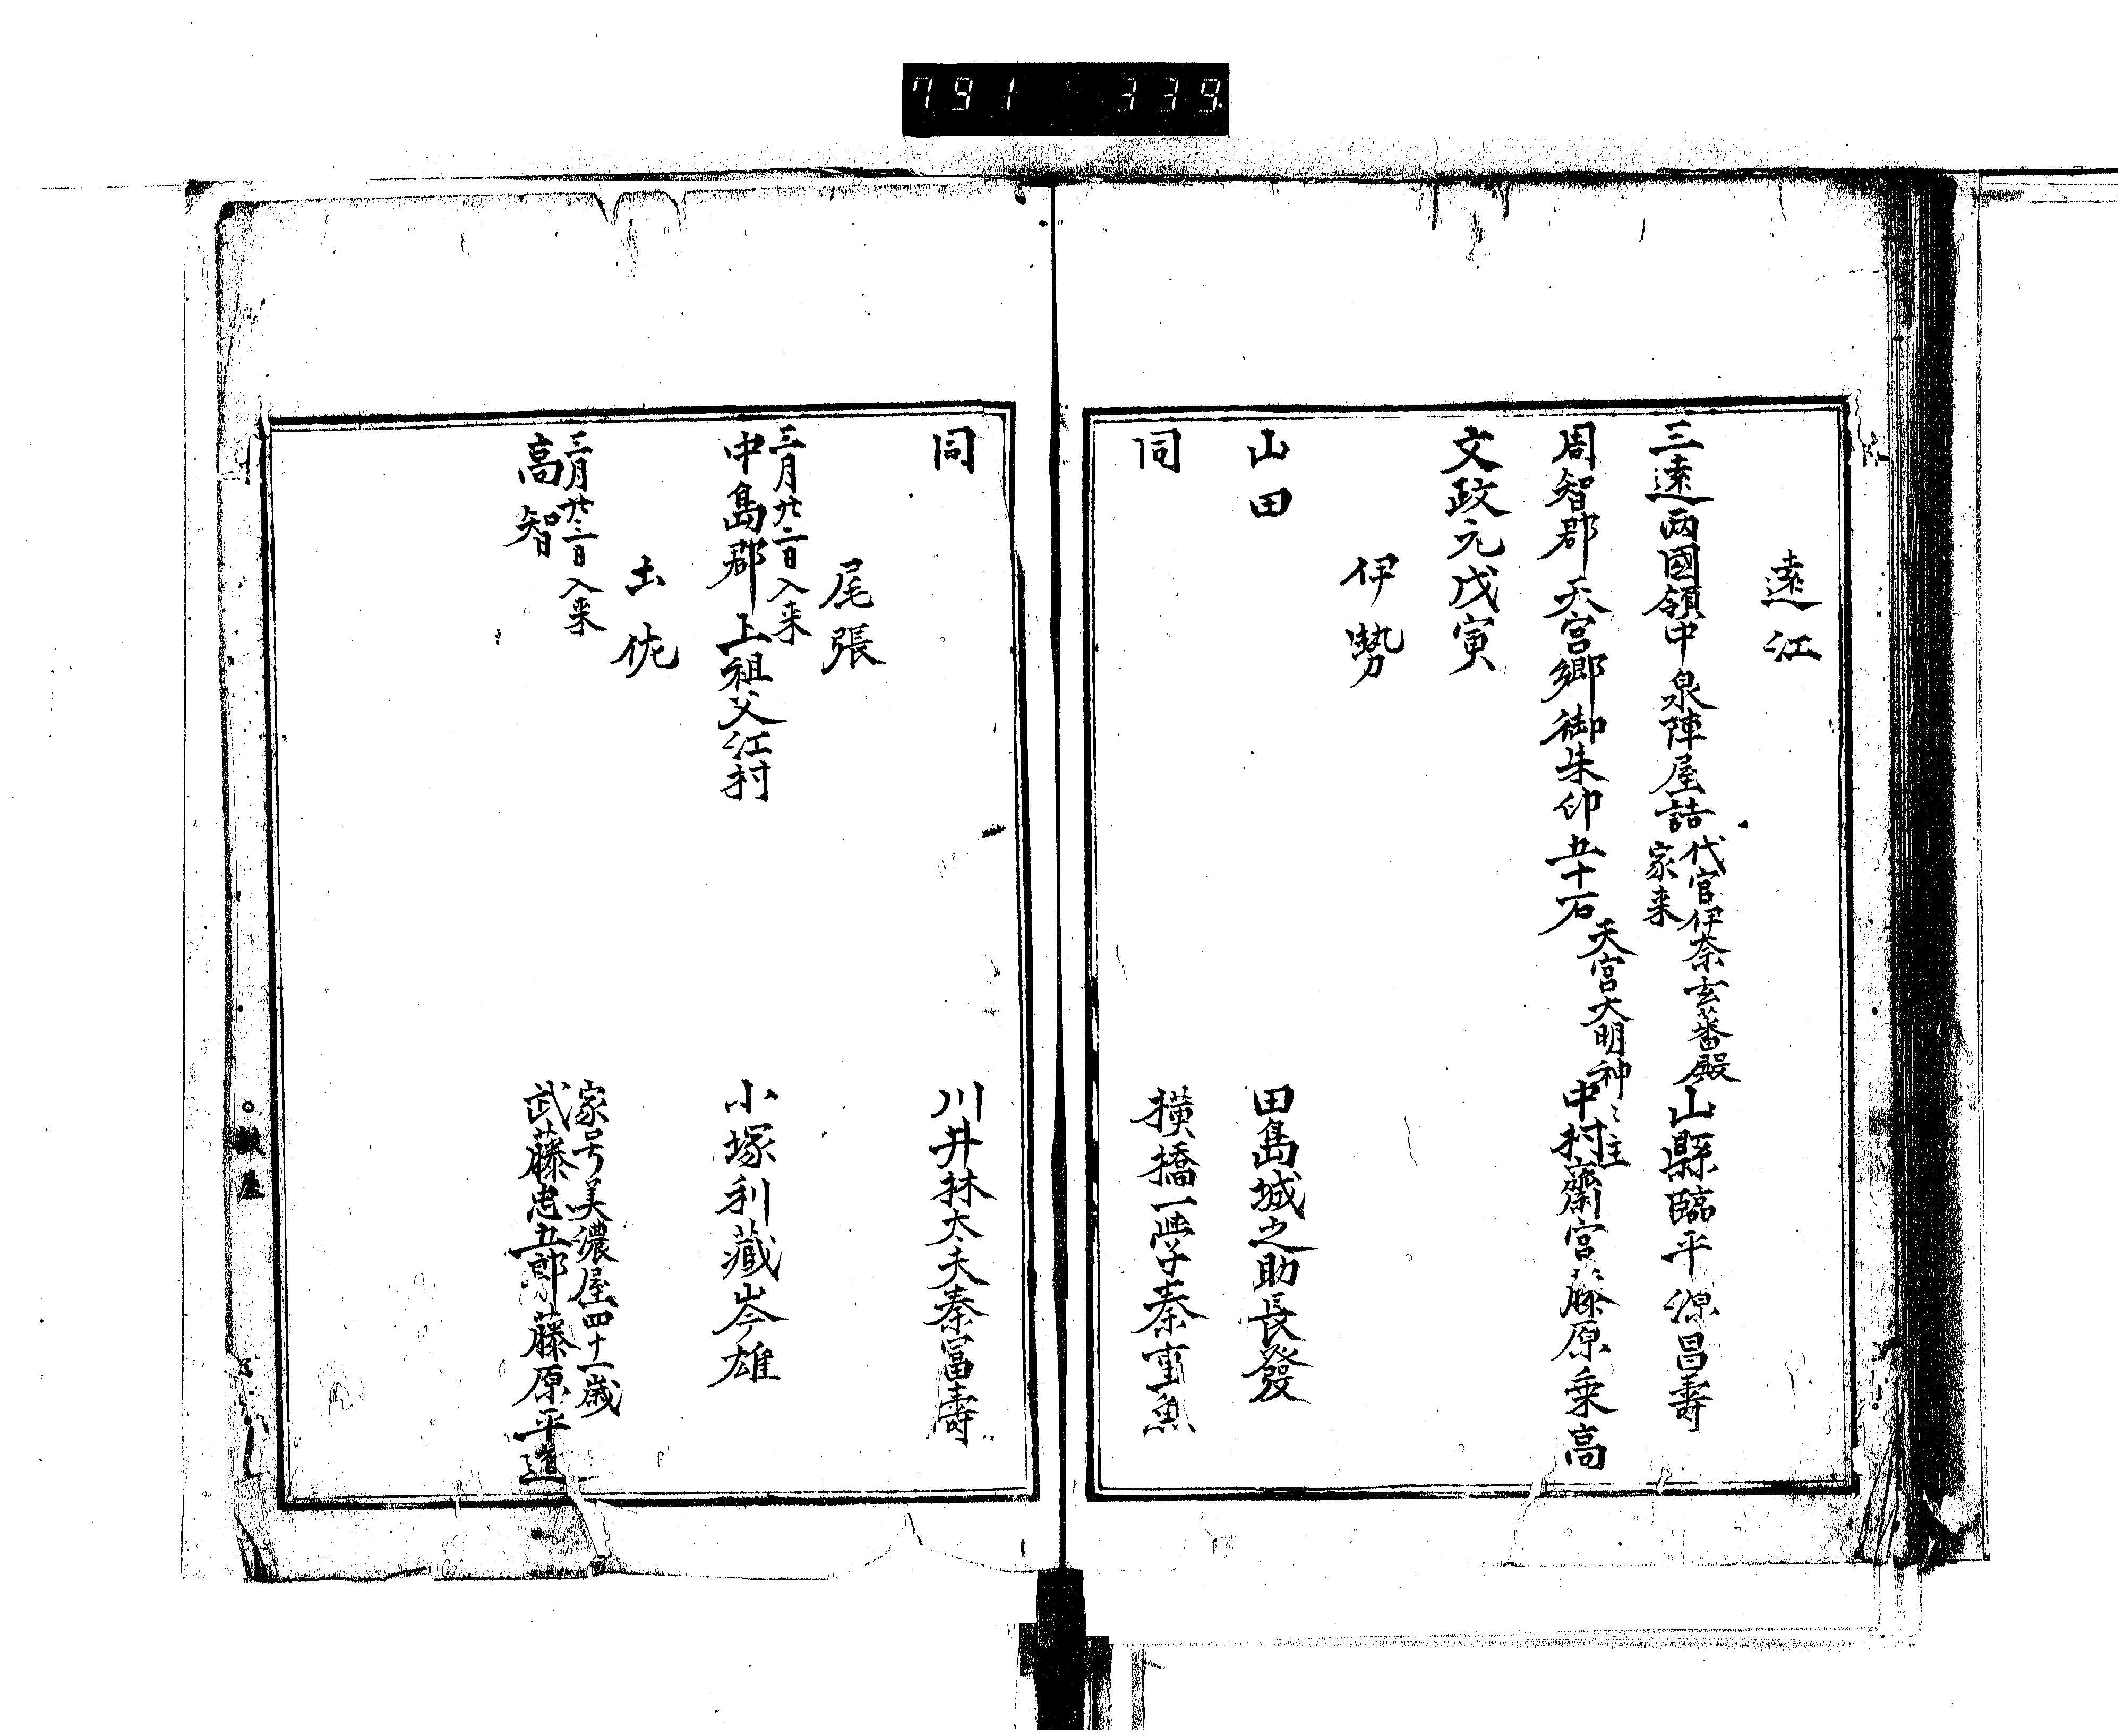 791 339
遠江
三遠両國領中泉陣屋詰 代官伊奈玄蕃殿
家来
山縣臨平源昌壽
周智郡天宮郷御朱印五十石 天宮大明神〻主
中村齋宮藤原乗高
文政元戊寅
伊勢
山田 田島城之助長發
同 横橋一学秦重魚
同 川井林太夫秦冨壽
尾張
三月廿二日入来
中島郡上祖父江村 小塚利藏岑雄
土佐
三月廿三日入来
高智 家号美濃屋四十一歳
武藤忠五郎藤原平道
屋